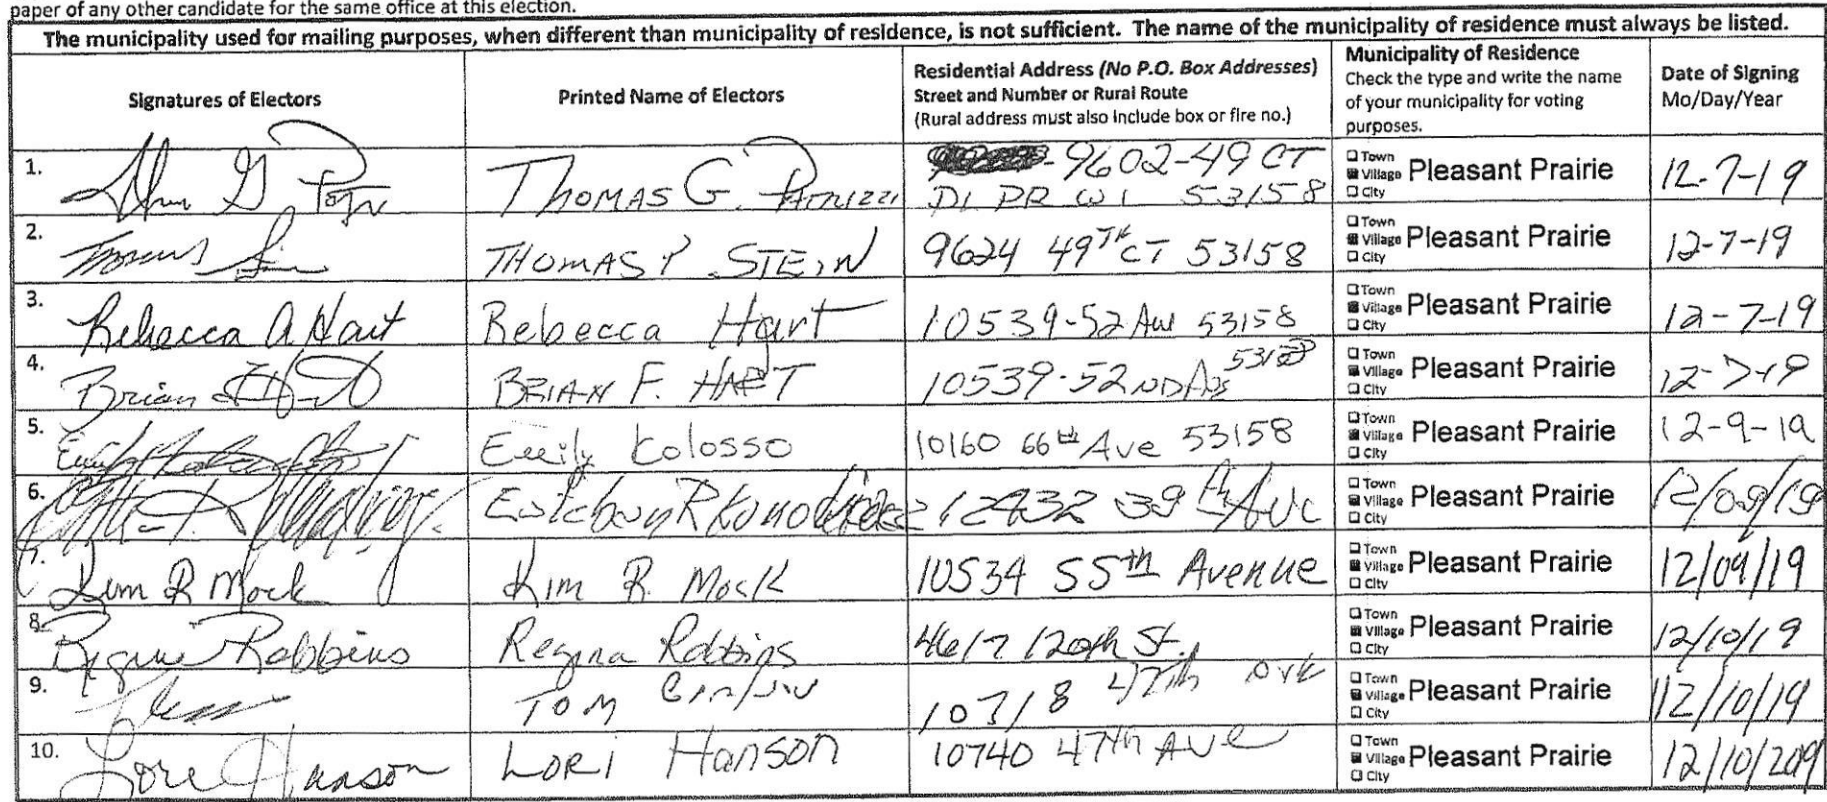 paper of any other candidate for the same office at this election.
The municipality used for mailing purposes, when different than municipality of residence, is not sufficient. The name of the municipality of residence must always be listed.
Signatures of Electors
Printed Name of Electors
Residential Address (No P.O. Box Addresses)
Street and Number or Rural Route
(Rural address must also include box or fire no.)
Municipality of Residence
Check the type and write the name
of your municipality for voting
purposes.
Date of Signing
Mo/Day/Year
1. THOMAS G. 9602-49 CT
PL PR WI 53158
Town
Village Pleasant Prairie
City
12-7-19
2. Thomas THOMAS P. STEIN 9624 49TH CT 53158
Town
Village Pleasant Prairie
City
12-7-19
3. Rebecca A Hart Rebecca Hart 10539-52 Ave 53158
Town
Village Pleasant Prairie
City
12-7-19
4. Brian BRIAN F. HART 10539-52ND Ave
Town
Village Pleasant Prairie
City
12-7-19
5. Emily Kolosso 10160 66th Ave 53158
Town
Village Pleasant Prairie
City
12-9-19
6. 39th Ave
Town
Village Pleasant Prairie
City
12/09/19
7. Kim R Mock Kim R. Mock 10534 55th Avenue
Town
Village Pleasant Prairie
City
12/09/19
8. Regina Robbins Regina Robbins 4617 120th St.
Town
Village Pleasant Prairie
City
12/10/19
9. TOM 10718 47th Ave
Town
Village Pleasant Prairie
City
12/10/19
10. Lori Hanson LORI Hanson 10740 47th Ave
Town
Village Pleasant Prairie
City
12/10/2019